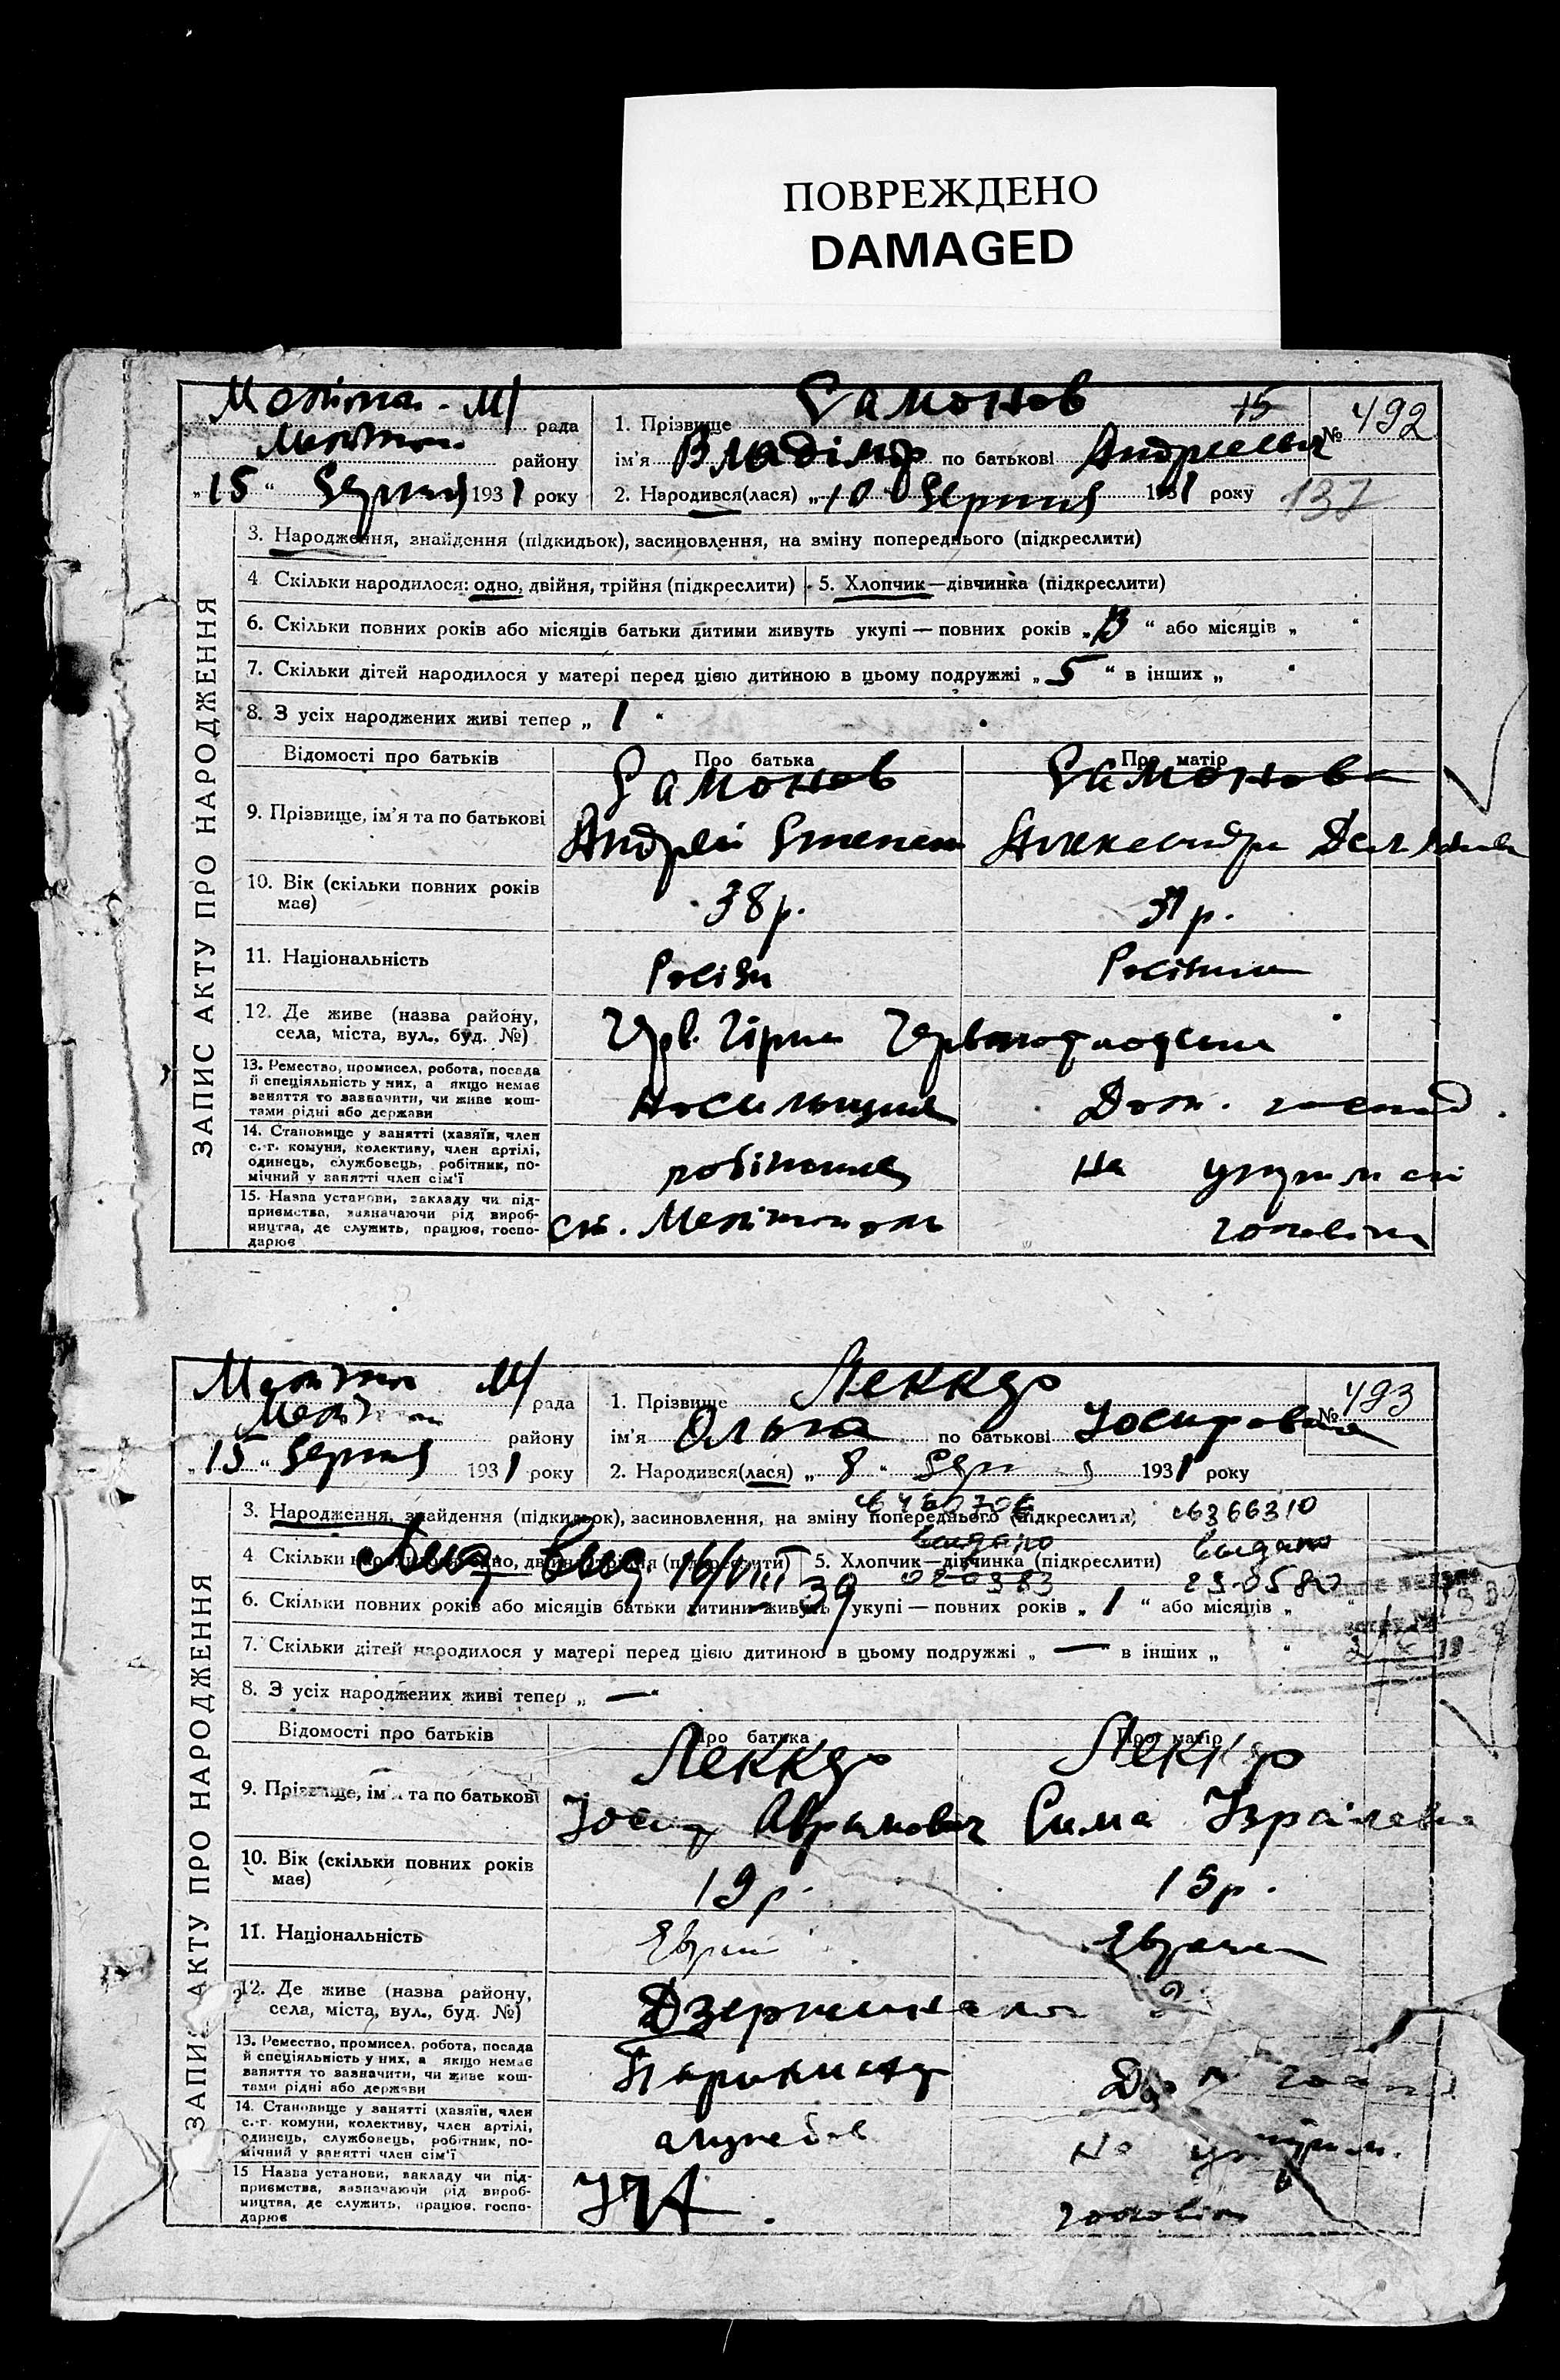 ПОВРЕЖДЕНО
DAMAGED
М/ рада
1. Прізвище Самонов 15
№ 492
району
ім'я Владімір по батькові Андреевич
„15“ Серпня 1931 року
2. Народився(лася) „10“ Серпня 1931 року
137
ЗАПИС АКТУ ПРО НАРОДЖЕННЯ
3. Народження, знайдення (підкидьок), засиновлення, на зміну попереднього (підкреслити)
4 Скільки народилося: одно, двійня, трійня (підкреслити)
5. Хлопчик—дівчинка (підкреслити)
6. Скільки повних років або місяців батьки дитини живуть укупі — повних років „13“ або місяців „ “
7. Скільки дітей народилося у матері перед цією дитиною в цьому подружжі „5“ в інших „ “
8. З усіх народжених живі тепер „1“
Відомості про батьків
Про батька
Про матір
9. Прізвище, ім'я та по батькові
Самонов
Андрей Степан
Самонова
Александра
10. Вік (скільки повних років має)
38 р.
31 р.
11. Національність
Росіян
Росіянка
12. Де живе (назва району, села, міста, вул., буд. №)
13. Ремество, промисел, робота, посада
й спеціяльність у них, а якщо немає
заняття то зазначити, чи живе кош-
тами рідні або держави
Носильщик
Дом. господ.
14. Становище у занятті (хазяїн, член
с.-г. комуни, колективу, член артілі,
одинець, службовець, робітник, по-
мічний у занятті член сім'ї
робітник
На утриман
15. Назва установи, закладу чи під-
приємства, зазначаючи рід вироб-
ництва, де служить, працює, госпо-
дарює
ст. Мелітополь
чоловіка
М/ рада
1. Прізвище Леккер
№ 493
району
ім'я Ольга по батькові Йосиповна
„15“ Серпня 1931 року
2. Народився(лася) „8“ Серп я 1931 року
ЗАПИС АКТУ ПРО НАРОДЖЕННЯ
3. Народження, знайдення (підкидьок), засиновлення, на зміну попереднього (підкреслити)
6366310
выдано
4 Скільки народилося: одно, двійня, трійня (підкреслити)
5. Хлопчик—дівчинка (підкреслити)
16/VIII 39
020383
230580
6. Скільки повних років або місяців батьки дитини живуть укупі — повних років „1“ або місяців „ “
7. Скільки дітей народилося у матері перед цією дитиною в цьому подружжі „—“ в інших „ “
8. З усіх народжених живі тепер „—“
Відомості про батьків
Про батька
Про матір
9. Прізвище, ім'я та по батькові
Леккер
Йосип Абрамович
Леккер
Сима Ізраілевна
10. Вік (скільки повних років має)
19 р.
19 р.
11. Національність
Еврей
Еврейка
12. Де живе (назва району, села, міста, вул., буд. №)
Дзержинського
13. Ремество, промисел, робота, посада
й спеціяльність у них, а якщо немає
заняття то зазначити, чи живе кош-
тами рідні або держави
14. Становище у занятті (хазяїн, член
с.-г. комуни, колективу, член артілі,
одинець, службовець, робітник, по-
мічний у занятті член сім'ї
службов
На утрим.
15 Назва установи, закладу чи під-
приємства, зазначаючи рід вироб-
ництва, де служить, працює, госпо-
дарює
чоловіка